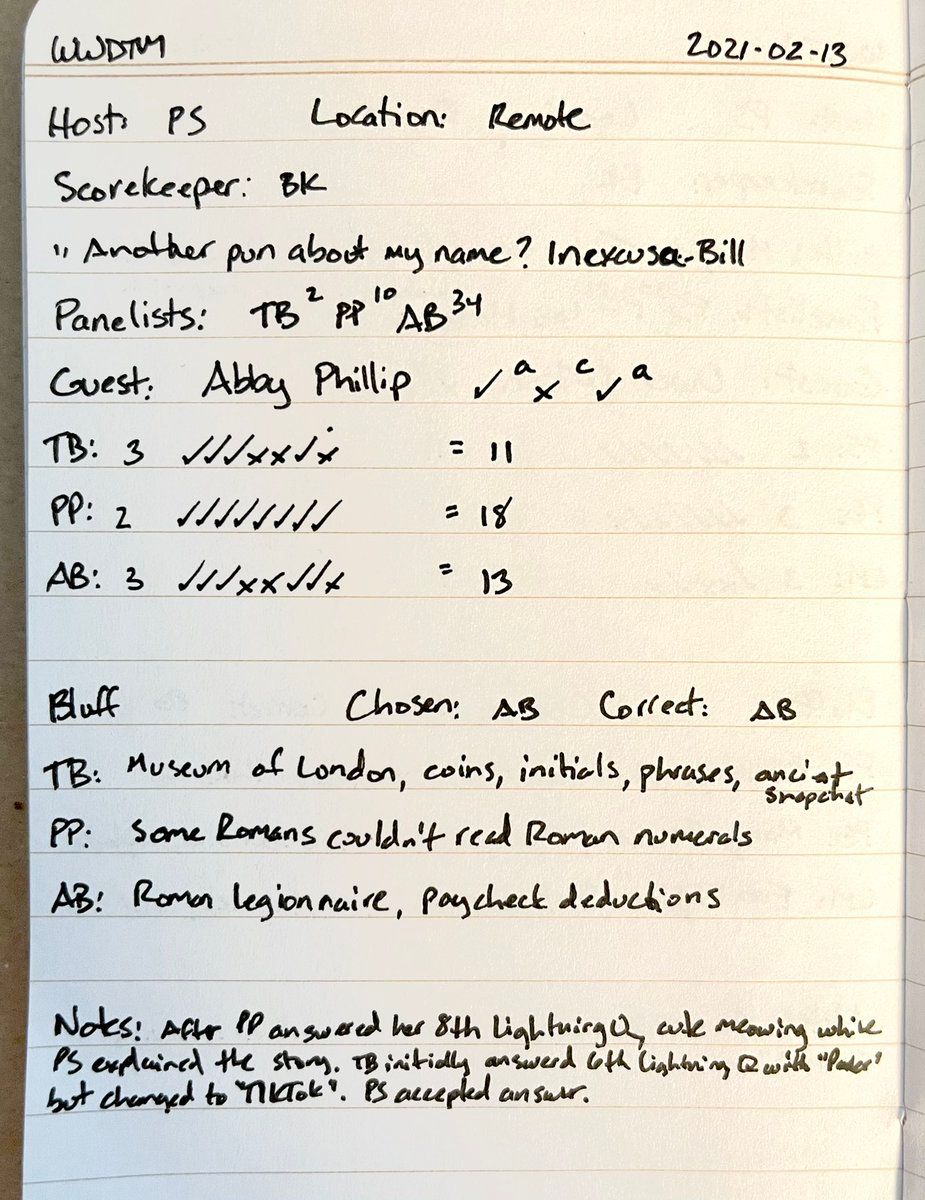 WWDTM 2021-02-13
Host: PS Location: Remote
Scorekeeper: BK
" Another pun about my name? Inexcusa-Bill
Panelists: TB² PP¹⁰ AB³⁴
Guest: Abby Phillip ✓ᵃ ✗ᶜ ✓ᵃ
TB: 3 ✓✓✓✗✗✓✗ = 11
PP: 2 ✓✓✓✓✓✓✓✓ = 18
AB: 3 ✓✓✓✗✗✓✓✗ = 13
Bluff Chosen: AB Correct: AB
TB: Museum of London, coins, initials, phrases, ancient
snapchat
PP: Some Romans couldn't read Roman numerals
AB: Roman legionnaire, paycheck deductions
Notes: After PP answered her 8th Lightning Q, cute meowing while
PS explained the story. TB initially answered 6th Lightning Q with
but changed to "TikTok". PS accepted answer.